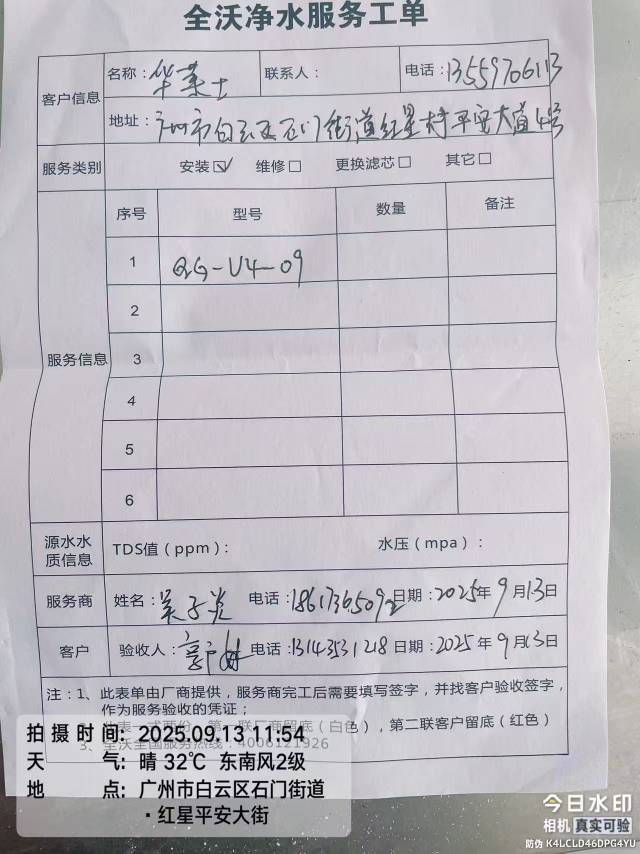 全沃净水服务工单
客户信息
名称：华莱士 联系人： 电话：13559706113
地址：广州市白云区石门街道红星村平安大道4号
服务类别 安装☑ 维修□ 更换滤芯□ 其它□
服务信息
序号 型号 数量 备注
1 QG-U4-09
2
3
4
5
6
源水水质信息 TDS值（ppm）： 水压（mpa）：
服务商 姓名：吴子 电话：18617365092 日期：2025年9月13日
客户 验收人：郭 电话：13143531218 日期：2025年9月13日
注：1、此表单由厂商提供，服务商完工后需要填写签字，并找客户验收签字，
作为服务验收的凭证；
此表一式两份，第一联厂商留底（白色），第二联客户留底（红色）
3、全沃全国服务热线：4006121926
拍摄时间：2025.09.13 11:54
天气：晴 32℃ 东南风2级
地点：广州市白云区石门街道
·红星平安大街
今日水印
相机 真实可验
防伪 K4LCLD46DPG4YU